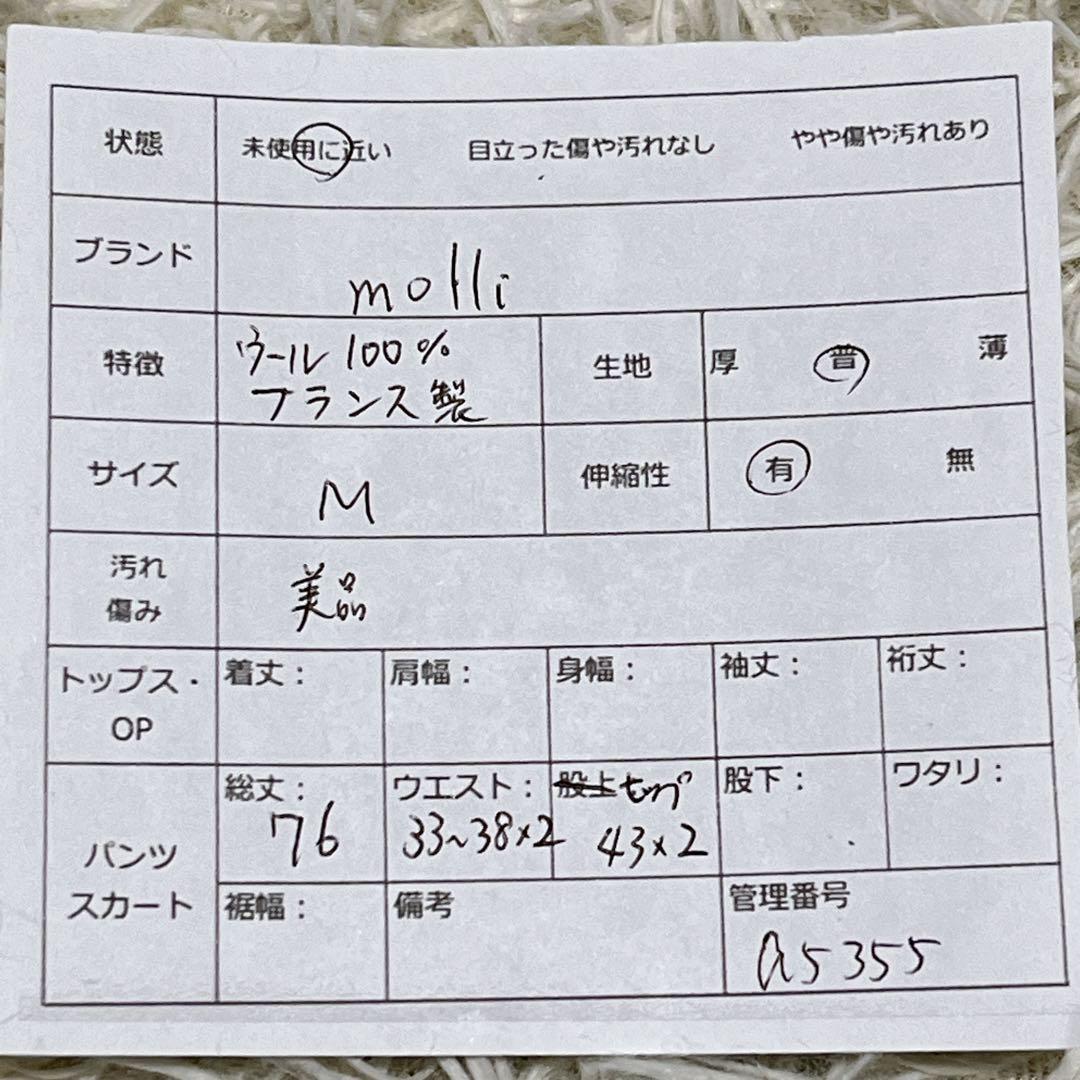 状態 未使用に近い 目立った傷や汚れなし やや傷や汚れあり
ブランド molli
特徴 ウール 100%
フランス製
生地 厚 普 薄
サイズ M 伸縮性 有 無
汚れ
傷み
美品
トップス・
OP
着丈: 肩幅: 身幅: 袖丈: 裄丈:
パンツ
スカート
総丈: 76
ウエスト: 33~38×2
股上 ヒップ 43×2
股下: ワタリ:
裾幅: 備考 管理番号
a5355